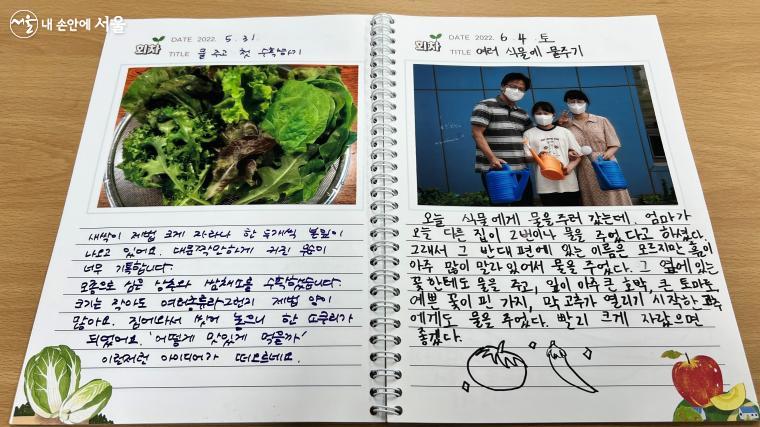 서울 내 손안에 서울
회차 DATE 2022. 5. 31.
TITLE 물 주고 첫 수확하기
새싹이 제법 크게 자라나 한 두개씩 본잎이
나오고 있어요. 대문짝만하게 커진 옥수
너무 기특합니다.
모종으로 심은 상추와 쌈채소를 수확했습니다.
크기는 작아도 여러종류라 그런지 제법 양이
많아요. 집에와서 씻어 놓으니 한 소쿠리가
되었어요. '어떻게 맛있게 먹을까'
이런저런 아이디어가 떠오르네요.
회차 DATE 2022. 6. 4. 토
TITLE 여러 식물에 물주기
오늘 식물에게 물을 주러 갔는데, 엄마가
오늘 다른 집이 2번이나 물을 주었다고 하셨다.
그래서 그 반대편에 있는 이름은 모르지만 흙이
아주 많이 말라 있어서 물을 주었다. 그 옆에 있는
꽃한테도 물을 주고, 잎이 아주 큰 호박, 큰 토마토,
예쁜 꽃이 핀 가지, 막 고추가 열리기 시작한 고추
에게도 물을 주었다. 빨리 크게 자랐으면
좋겠다.